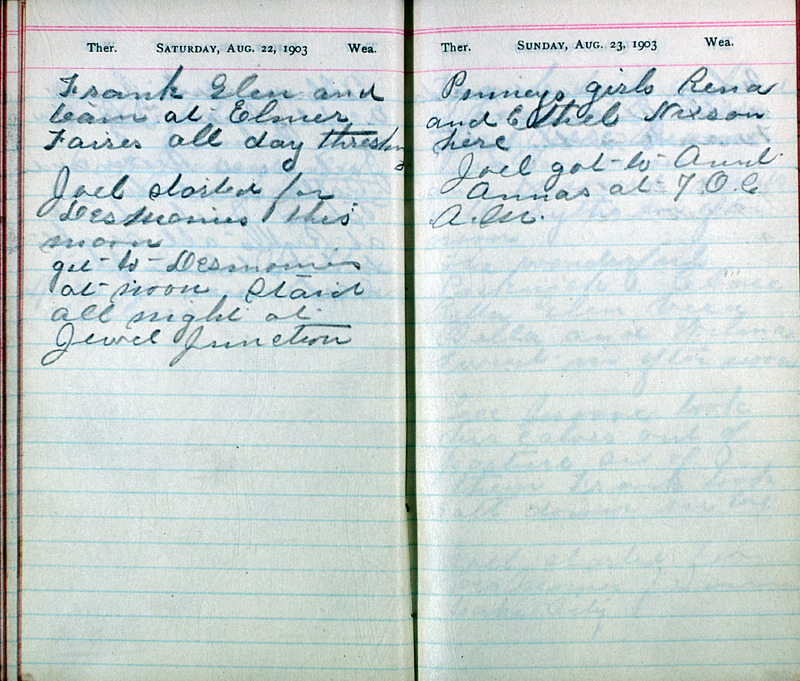 Ther. SATURDAY, AUG. 22, 1903 Wea.
Frank Glen and
team at Elmer
Faires all day threshng
Joel started for
Desmonies this
morn
get to Desmonies
at noon Staid
all night at
Jewel Junction
Ther. SUNDAY, AUG. 23, 1903 Wea.
Pinneys girls Rena
and Ethel Nixson
here
Joel got to Aunt
Annas at 7.0.C
A.M.